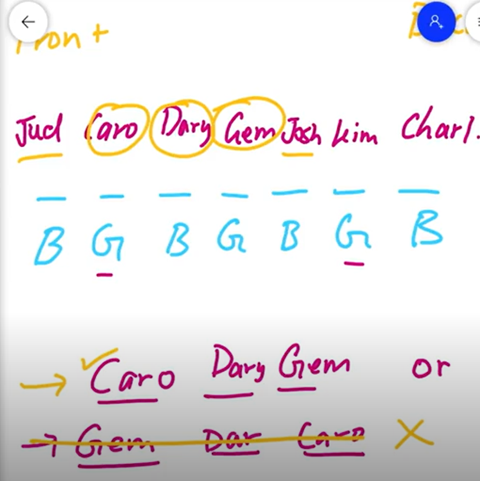 Front
Jud Caro Dary Gem Josh kim Charl.
B G B G B G B
→ Caro Dary Gem or
→ Gem Dar Caro X